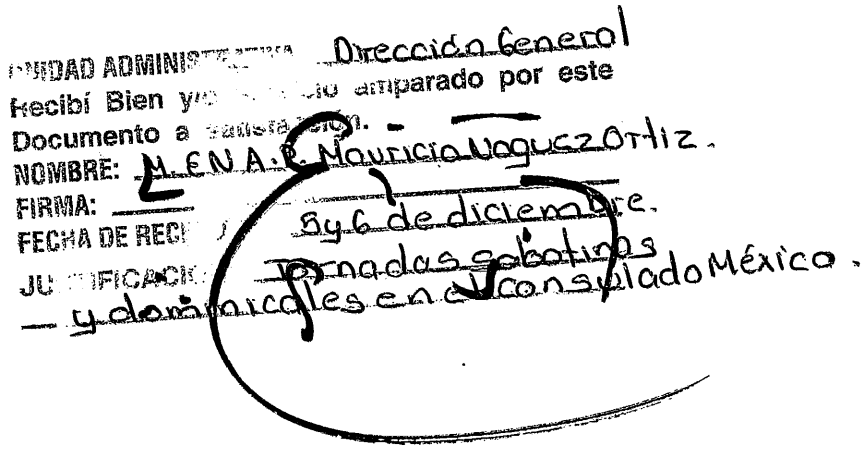 UNIDAD ADMINISTRATIVA Dirección General
Recibí Bien y/o Servicio amparado por este
Documento a satisfacción.
NOMBRE: M.E.N.A.P. Mauricio Vaquez Ortiz.
FIRMA:
FECHA DE RECI 5 y 6 de diciembre.
JUSTIFICACIÓN Jornadas sabatinas
y dominicales en el consulado México.